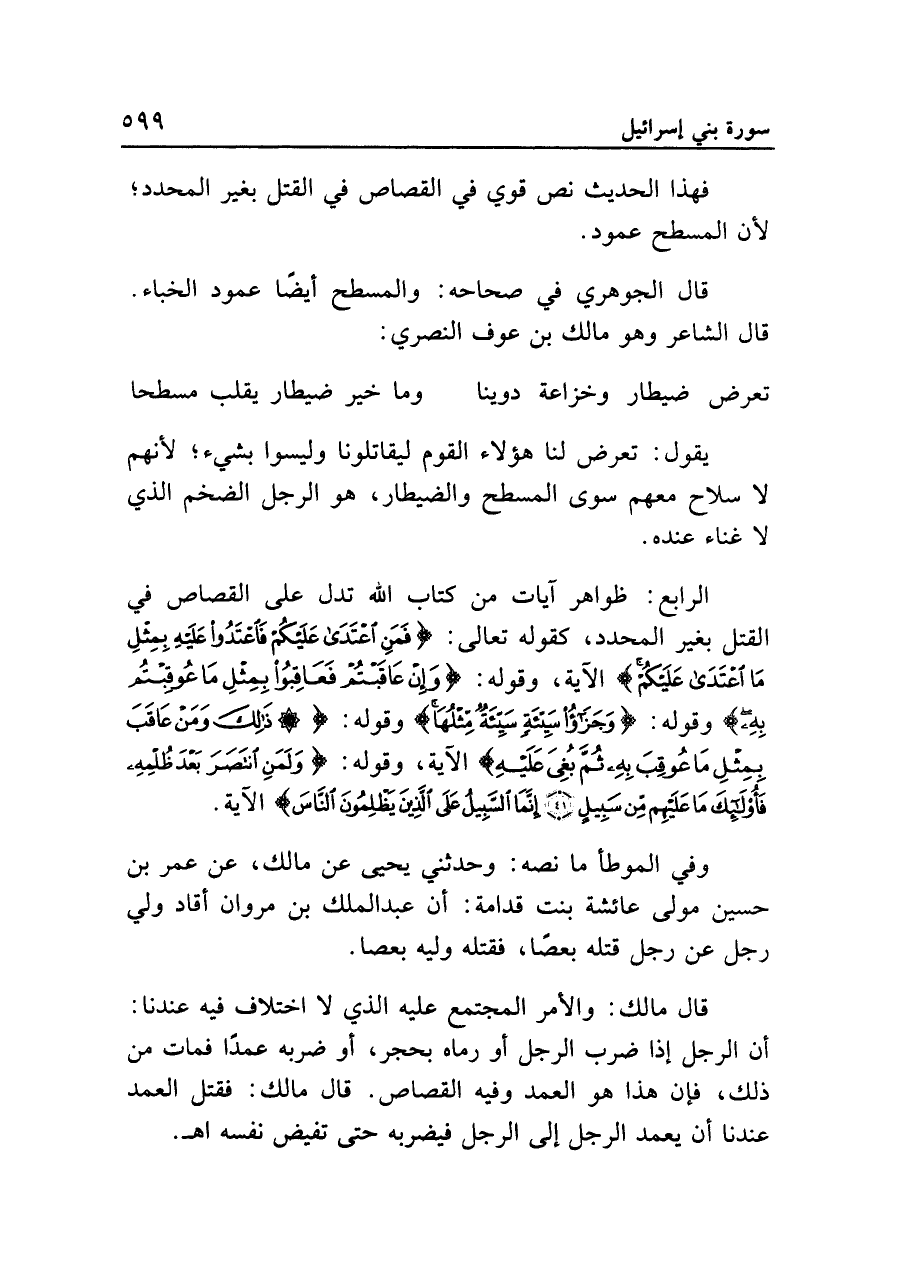 سورة بني إسرائيل ٥٩٩
فهذا الحديث نص قوي في القصاص في القتل بغير المحدد؛
لأن المسطح عمود.
قال الجوهري في صحاحه: والمسطح أيضًا عمود الخباء.
قال الشاعر وهو مالك بن عوف النصري:
تعرض ضيطار وخزاعة دوينا وما خير ضيطار يقلب مسطحا
يقول: تعرض لنا هؤلاء القوم ليقاتلونا وليسوا بشيء؛ لأنهم
لا سلاح معهم سوى المسطح والضيطار، هو الرجل الضخم الذي
لا غناء عنده.
الرابع: ظواهر آيات من كتاب الله تدل على القصاص في
القتل بغير المحدد، كقوله تعالى: ﴿فَمَنِ ٱعْتَدَىٰ عَلَيْكُمْ فَٱعْتَدُوا۟ عَلَيْهِ بِمِثْلِ
مَا ٱعْتَدَىٰ عَلَيْكُمْ ۚ﴾ الآية، وقوله: ﴿وَإِنْ عَاقَبْتُمْ فَعَاقِبُوا۟ بِمِثْلِ مَا عُوقِبْتُم
بِهِۦ ۖ﴾ وقوله: ﴿وَجَزَٰٓؤُا۟ سَيِّئَةٍ سَيِّئَةٌ مِّثْلُهَا ۖ﴾ وقوله: ﴿۞ ذَٰلِكَ وَمَنْ عَاقَبَ
بِمِثْلِ مَا عُوقِبَ بِهِۦ ثُمَّ بُغِىَ عَلَيْهِ﴾ الآية، وقوله: ﴿وَلَمَنِ ٱنتَصَرَ بَعْدَ ظُلْمِهِۦ
فَأُو۟لَٰٓئِكَ مَا عَلَيْهِم مِّن سَبِيلٍ ﴿٤١﴾ إِنَّمَا ٱلسَّبِيلُ عَلَى ٱلَّذِينَ يَظْلِمُونَ ٱلنَّاسَ﴾ الآية.
وفي الموطأ ما نصه: وحدثني يحيى عن مالك، عن عمر بن
حسين مولى عائشة بنت قدامة: أن عبدالملك بن مروان أقاد ولي
رجل عن رجل قتله بعصًا، فقتله وليه بعصا.
قال مالك: والأمر المجتمع عليه الذي لا اختلاف فيه عندنا:
أن الرجل إذا ضرب الرجل أو رماه بحجر، أو ضربه عمدًا فمات من
ذلك، فإن هذا هو العمد وفيه القصاص. قال مالك: فقتل العمد
عندنا أن يعمد الرجل إلى الرجل فيضربه حتى تفيض نفسه اهـ.